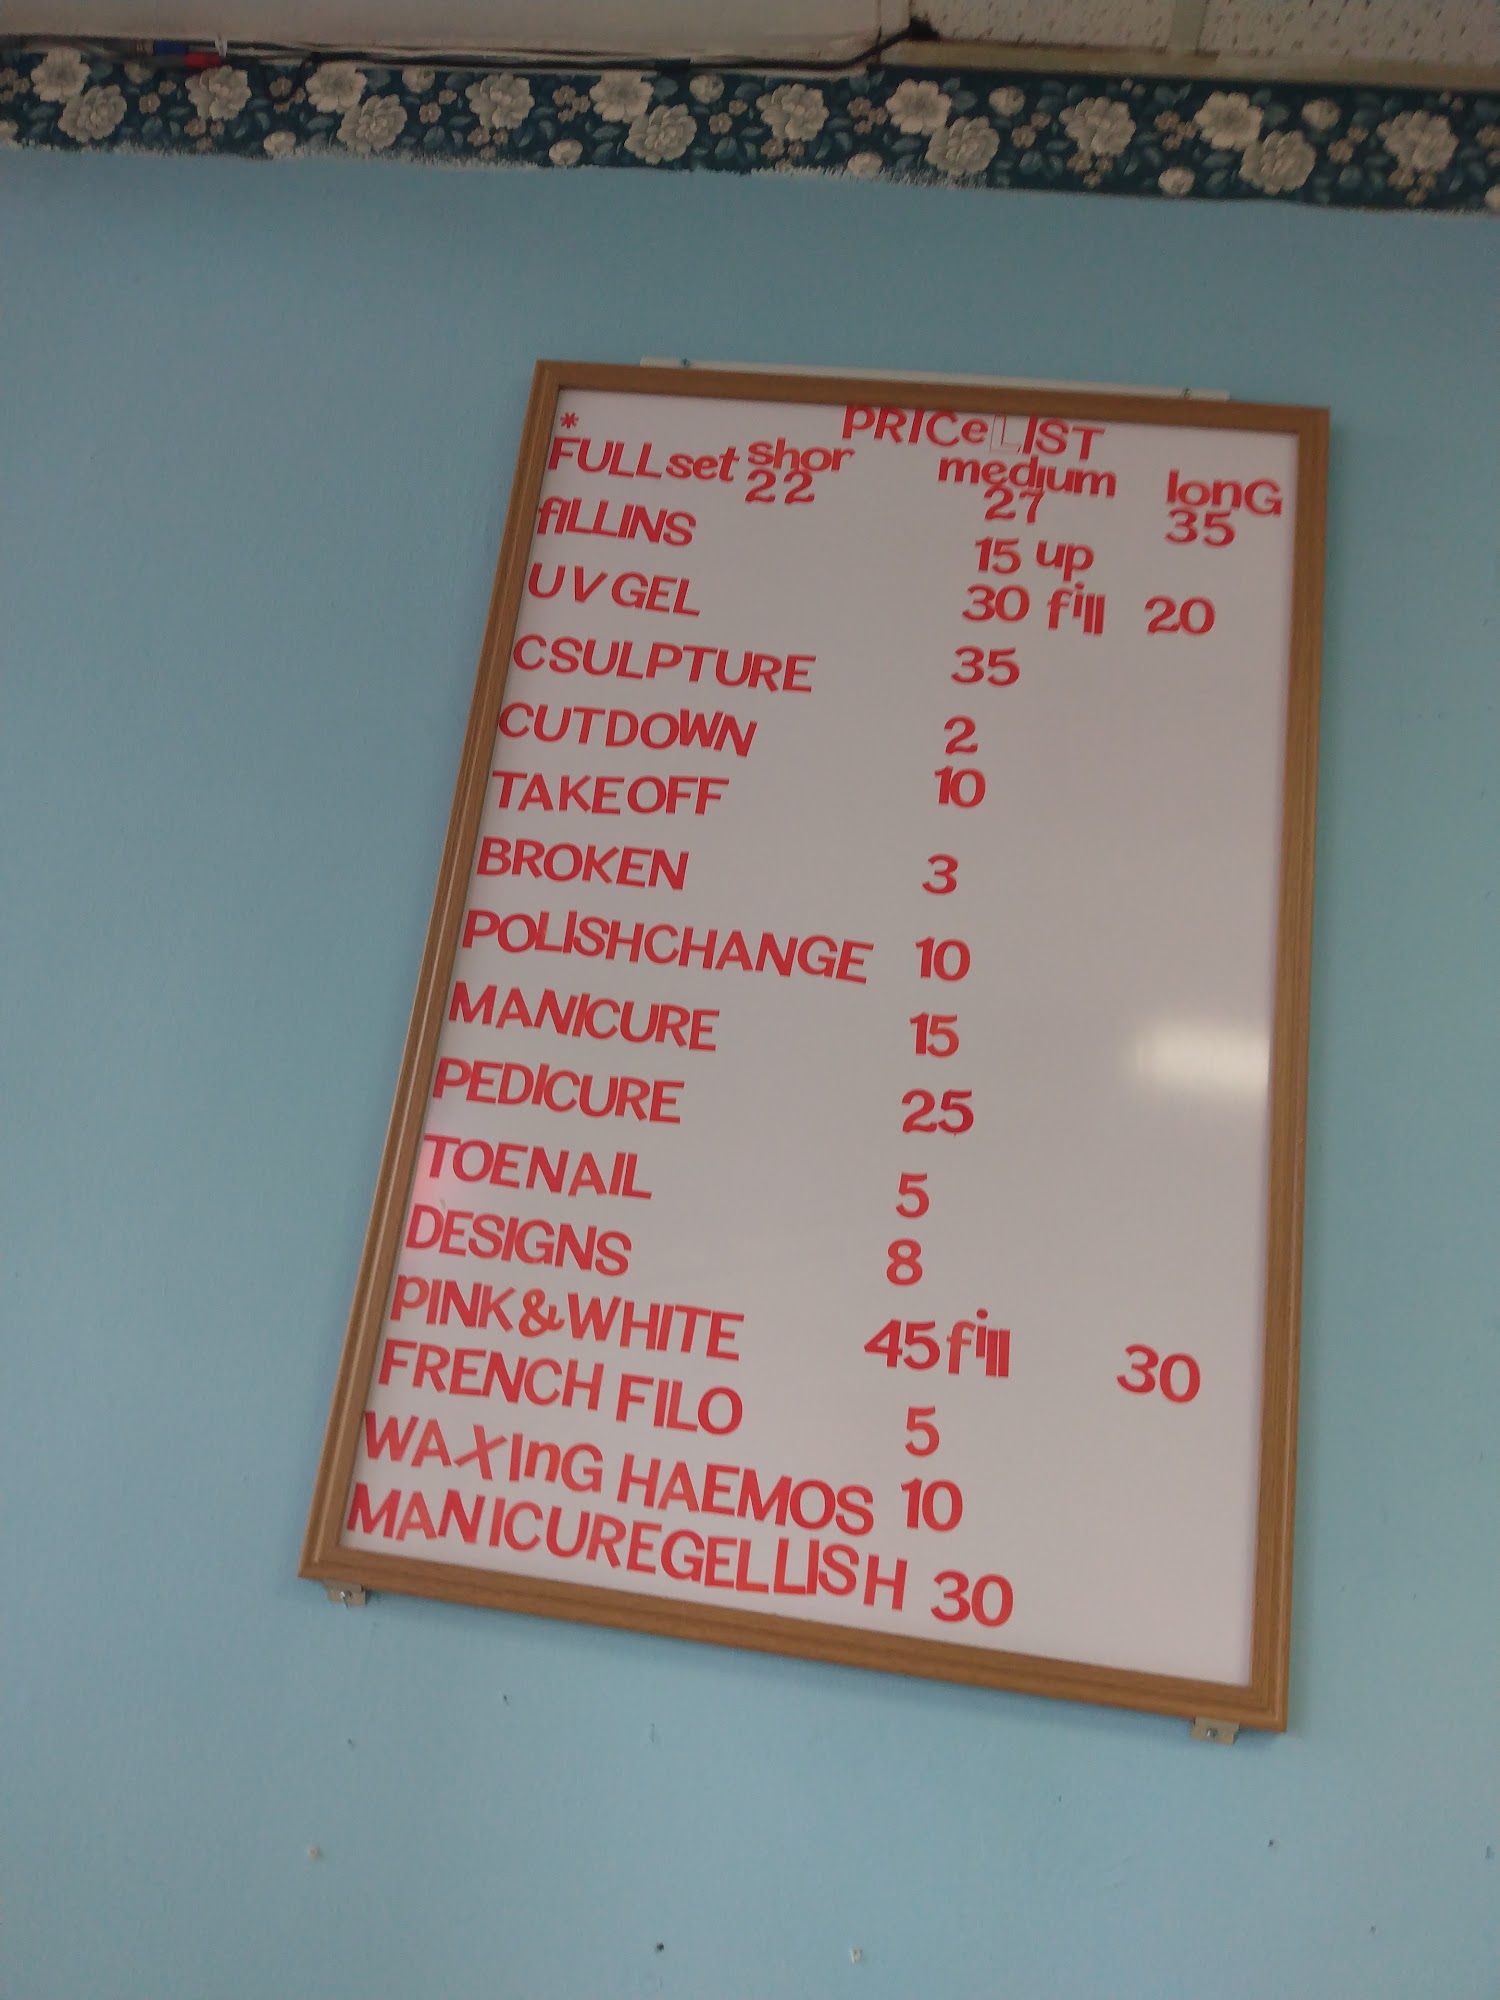 * PRICe LIST
FULL set shor medium lonG
22 27 35
fILLINS 15 up
UV GEL 30 fill 20
CSULPTURE 35
CUTDOWN 2
TAKEOFF 10
BROKEN 3
POLISHCHANGE 10
MANICURE 15
PEDICURE 25
TOENAIL 5
DESIGNS 8
PINK&WHITE 45 fill 30
FRENCH FILO 5
WAXInG HAEMOS 10
MANICUREGELLISH 30